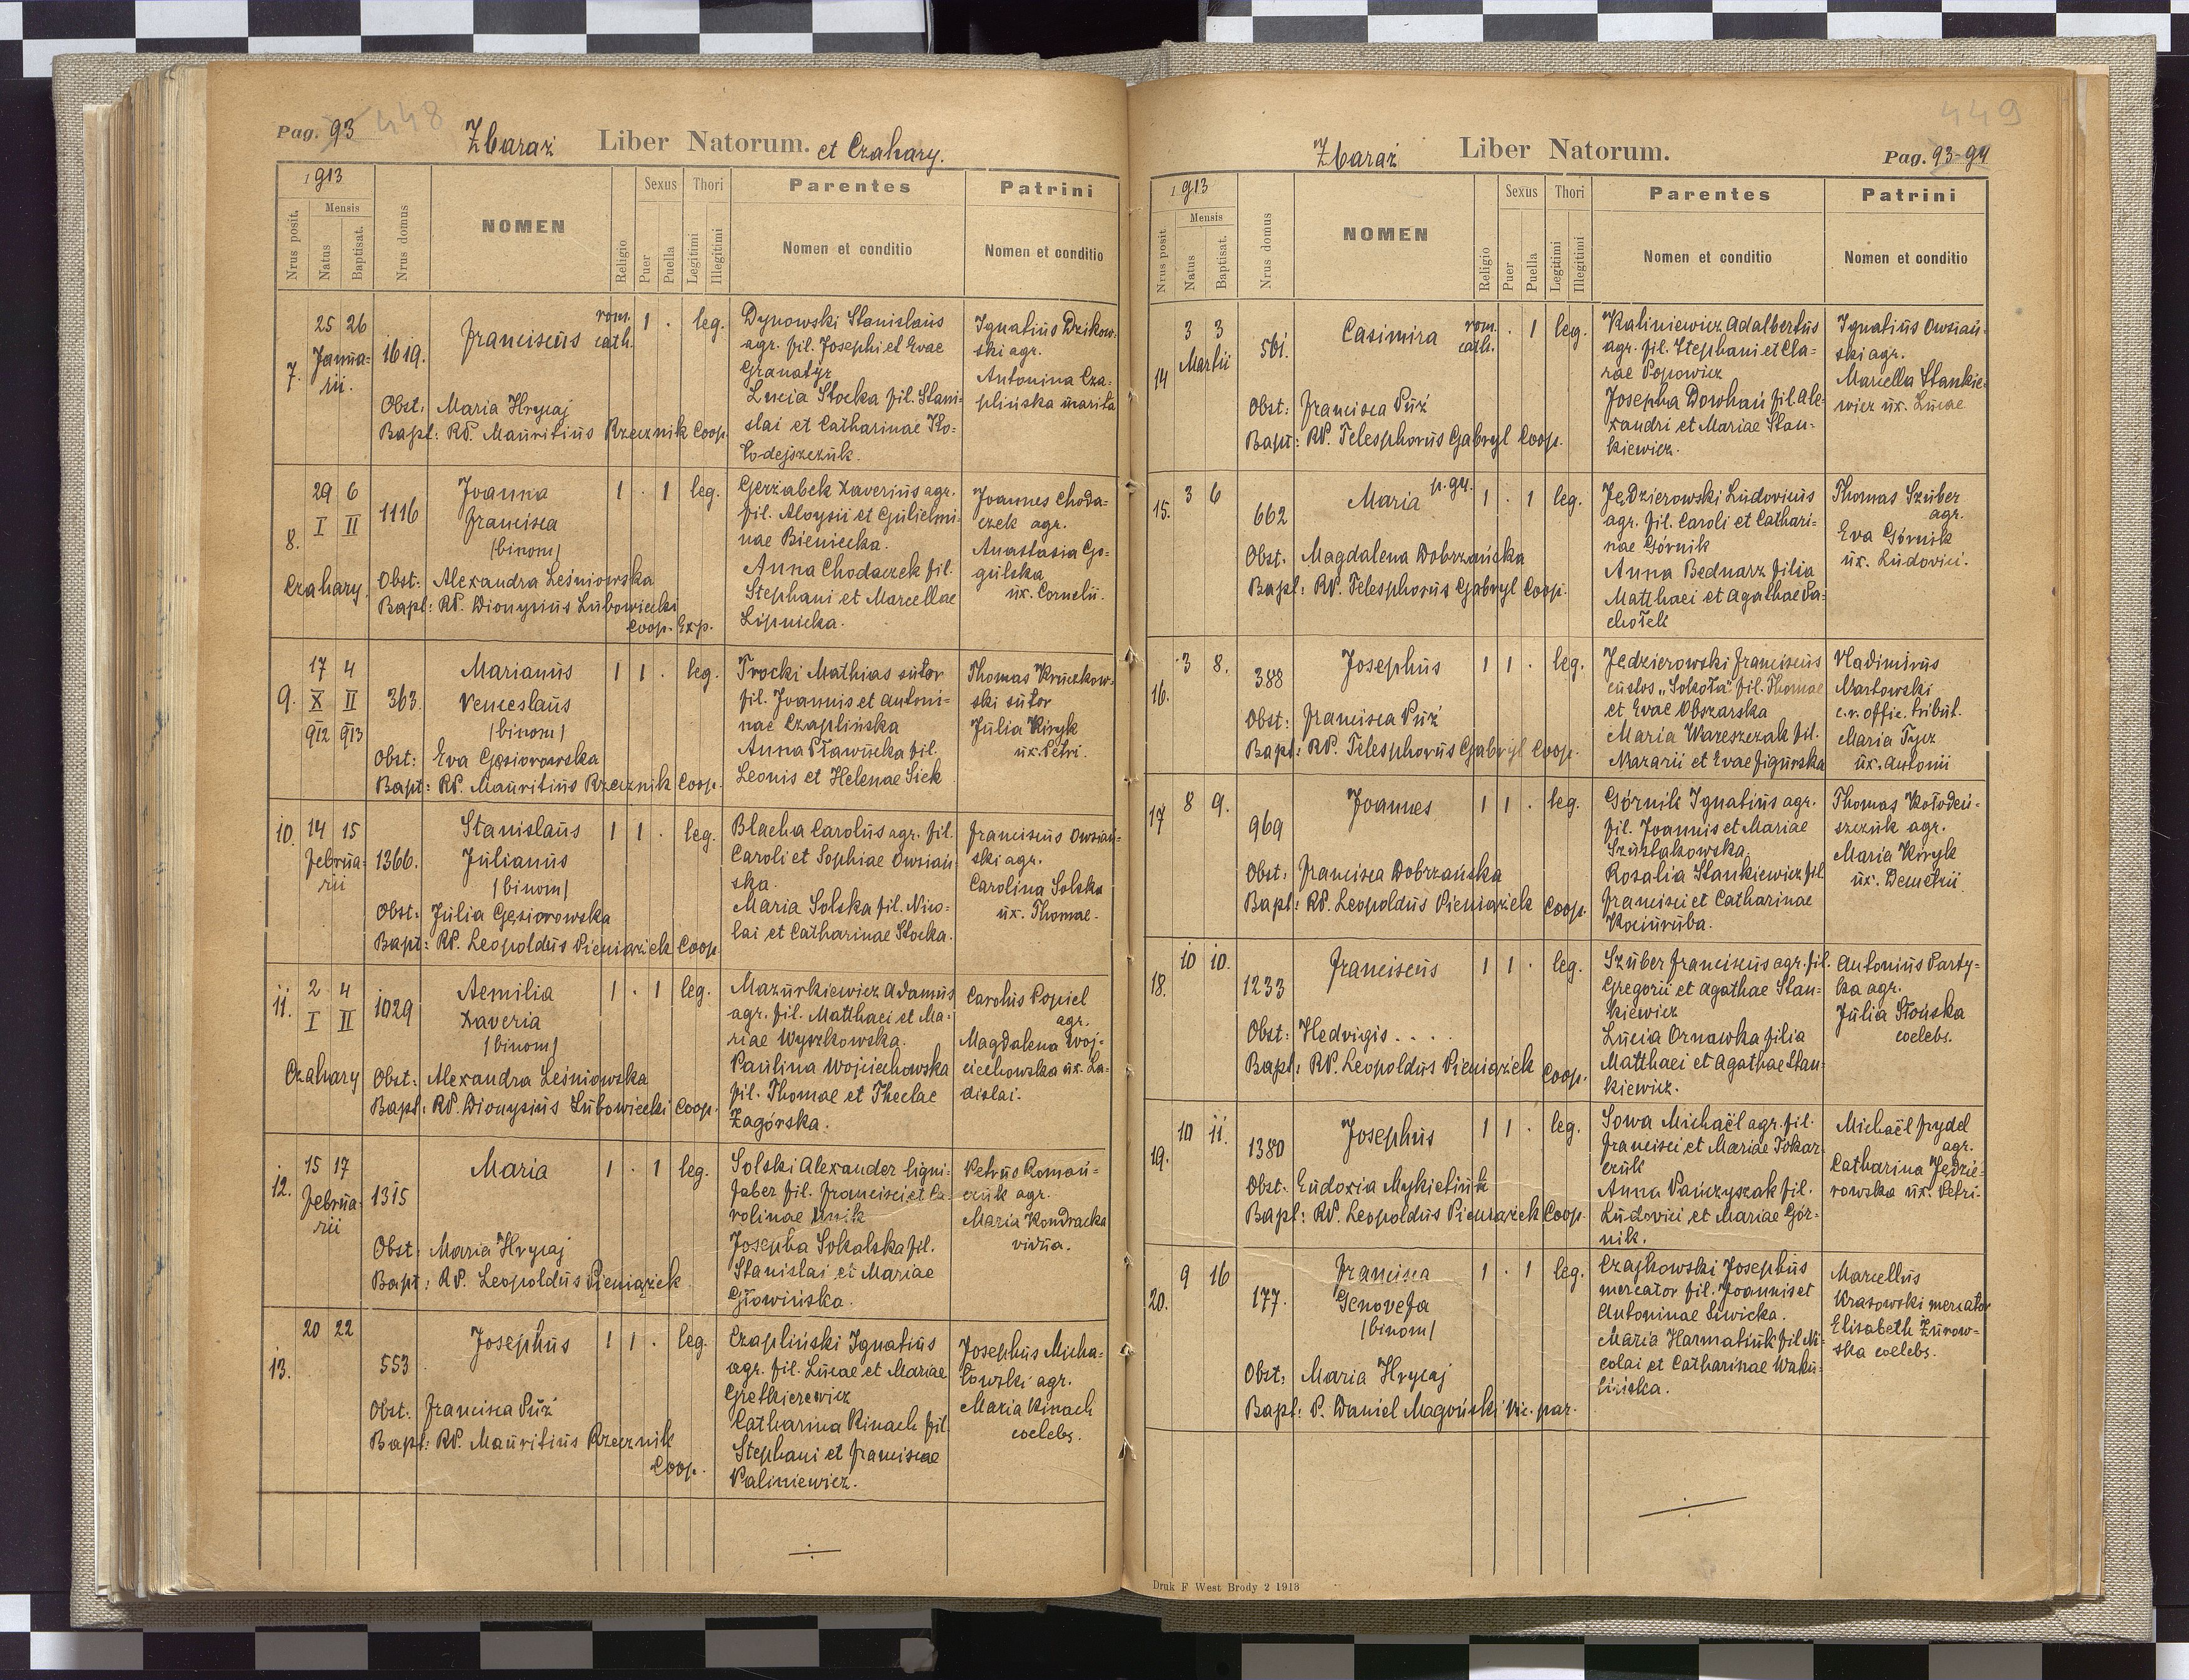 Pag. 93 448
Zbaraż Liber Natorum. et Czahary.
1913
Nrus posit.
Mensis
Natus
Baptisat.
Nrus domus
NOMEN
Religio
Sexus
Puer
Puella
Thori
Legitimi
Illegitimi
Parentes
Nomen et conditio
Patrini
Nomen et conditio
7.
25 26
Janua-
rii.
1619.
Franciscus
rom.
cath.
1 . leg.
Obst: Maria Hrycaj
Bapt: RP. Mauritius Rzeznik Coop.
Dynowski Stanislaus
agr. fil. Josephi et Evae
Granatyr
Lucia Stocka fil. Stani-
slai et Catharinae Ko-
łodejszczuk.
Ignatius Dzikow-
ski agr.
Antonina Cza-
plińska marita
8.
29 6
I II
Czahary.
1116
Joanna
Francisca
/binom/
1 . 1 leg.
Obst: Alexandra Leśniowska
Bapt: RP. Dionysius Lubowiecki
Coop. Exp.
Gerzabek Xaverius agr.
fil. Aloysii et Gulielmi-
nae Bieniecka.
Anna Chodaczek fil.
Stephani et Marcellae
Lipnicka.
Joannes Choda-
czek agr.
Anastasia Go-
gulska
ux. Cornelii.
9.
17 4
X II
912 913
363.
Marianus
Venceslaus
/binom/
1 1 . leg.
Obst: Eva Gęsiorowska
Bapt: RP. Mauritius Rzeznik Coop.
Trocki Mathias sutor
fil. Joannis et Antoni-
nae Czaplińska
Anna Pławucka fil.
Leonis et Helenae Siek
Thomas Kruczkow-
ski sutor
Julia Kiryk
ux. Petri.
10.
14 15
Februa-
rii
1366.
Stanislaus
Julianus
/binom/
1 1 . leg.
Obst: Julia Gęsiorowska
Bapt: RP. Leopoldus Pieniążek Coop.
Blacha Carolus agr. fil.
Caroli et Sophiae Owsian-
ska.
Maria Solska fil. Nico-
lai et Catharinae Stocka.
Franciscus Owsian-
ski agr.
Carolina Solska
ux. Thomae.
11.
2 4
I II
Czahary
1029
Aemilia
Xaveria
/binom/
1 . 1 leg.
Obst: Alexandra Leśniowska
Bapt: RP. Dionysius Lubowiecki Coop.
Mazurkiewicz Adamus
agr. fil. Matthaei et Ma-
riae Wyszkowska.
Paulina Wojciechowska
fil. Thomae et Theclae
Zagórska.
Carolus Popiel
agr.
Magdalena Woj-
ciechowska ux. La-
dislai.
12.
15 17
Februa-
rii
1315
Maria
1 . 1 leg.
Obst: Maria Hrycaj
Bapt: RP. Leopoldus Pieniążek
Solski Alexander ligni-
faber fil. Francisci et Ca-
rolinae Unik
Josepha Sokalska fil.
Stanislai et Mariae
Głowińska.
Petrus Roman-
czuk agr.
Maria Kondracka
vidua.
13.
20 22
553
Josephus
1 1 . leg.
Obst: Francisca Puź
Bapt: RP. Mauritius Rzeznik
Coop.
Czapliński Ignatius
agr. fil. Lucae et Mariae
Gretkierewicz
Catharina Kinach fil.
Stephani et Franciscae
Kaliniewicz.
Josephus Micha-
łowski agr.
Maria Kinach
coelebs.
449
Zbaraż Liber Natorum. Pag. 93-94
1913
Nrus posit
Mensis
Natus
Baptisat.
Nrus domus
NOMEN
Religio
Sexus
Puer
Puella
Thori
Legitimi
Illegitimi
Parentes
Nomen et conditio
Patrini
Nomen et conditio
14
3 3
Martii
561.
Casimira
rom.
cath.
. 1 leg.
Obst: Francisca Puź
Bapt: RP. Telesphorus Gabryl Coop.
Kaliniewicz Adalbertus
agr. fil. Stephani et Cla-
rae Popowicz
Josepha Dowhań fil. Ale-
xandri et Mariae Stan-
kiewicz.
Ignatius Owsian-
ski agr.
Marcella Stankie-
wicz ux. Lucae
15.
3 6
662
Maria
1 . 1 leg.
Obst: Magdalena Dobrzańska
Bapt: RP. Telesphorus Gabryl Coop.
Jędzierowski Ludovicus
agr. fil. Caroli et Cathari-
nae Górnik
Anna Bednarz filia
Matthaei et Agathae Pa-
chołek
Thomas Szuber
agr.
Eva Górnik
ux. Ludovici.
16.
3 8.
388
Josephus
1 1 . leg.
Obst: Francisca Puź
Bapt: RP. Telesphorus Gabryl Coop.
Jedzierowski Franciscus
custos „Sokoła" fil. Thomae
et Evae Obszarska
Maria Wareszczak fil.
Mazarii et Evae Figurska
Vladimirus
Martowski
c.r. offic. tribut.
Maria Tycz
ux. Antonii
17
8 9.
969
Joannes
1 1 . leg.
Obst: Francisca Dobrzańska
Bapt: RP. Leopoldus Pieniążek Coop.
Górnik Ignatius agr.
fil. Joannis et Mariae
Szustakowska.
Rosalia Stankiewicz fil.
Francisci et Catharinae
Kociuruba.
Thomas Kołodeń-
szczuk agr.
Maria Kiryk
ux. Demetrii
18.
10 10.
1233
Franciscus
1 1 . leg.
Obst: Hedvigis . . . .
Bapt: RP. Leopoldus Pieniążek Coop.
Szuber Franciscus agr. fil.
Gregorii et Agathae Stan-
kiewicz
Lucia Ornawka filia
Matthaei et Agathae Stan-
kiewicz.
Antonius Party-
ka agr.
Julia Słońska
coelebs.
19.
10 11.
1380
Josephus
1 1 . leg.
Obst: Eudoxia Mykietiuk
Bapt: RP. Leopoldus Pieniążek Coop.
Sowa Michaël agr. fil.
Francisci et Mariae Tokar-
czuk
Anna Pańczyszak fil.
Ludovici et Mariae Gór-
nik.
Michaël Frydel
agr.
Catharina Jędzie-
rowska ux. Petri.
20.
9 16
177.
Francisca
Genovefa
/binom/
1 . 1 leg.
Obst: Maria Hrycaj
Bapt: P. Daniel Magoński Vic. par.
Czajkowski Josephus
mercator fil. Joannis et
Antoninae Siwicka.
Maria Harmatiuk fil Ni-
colai et Catharinae Waku-
lińska.
Marcellus
Krasowski mercator
Elisabeth Żurow-
ska coelebs.
Druk F West Brody 2 1913